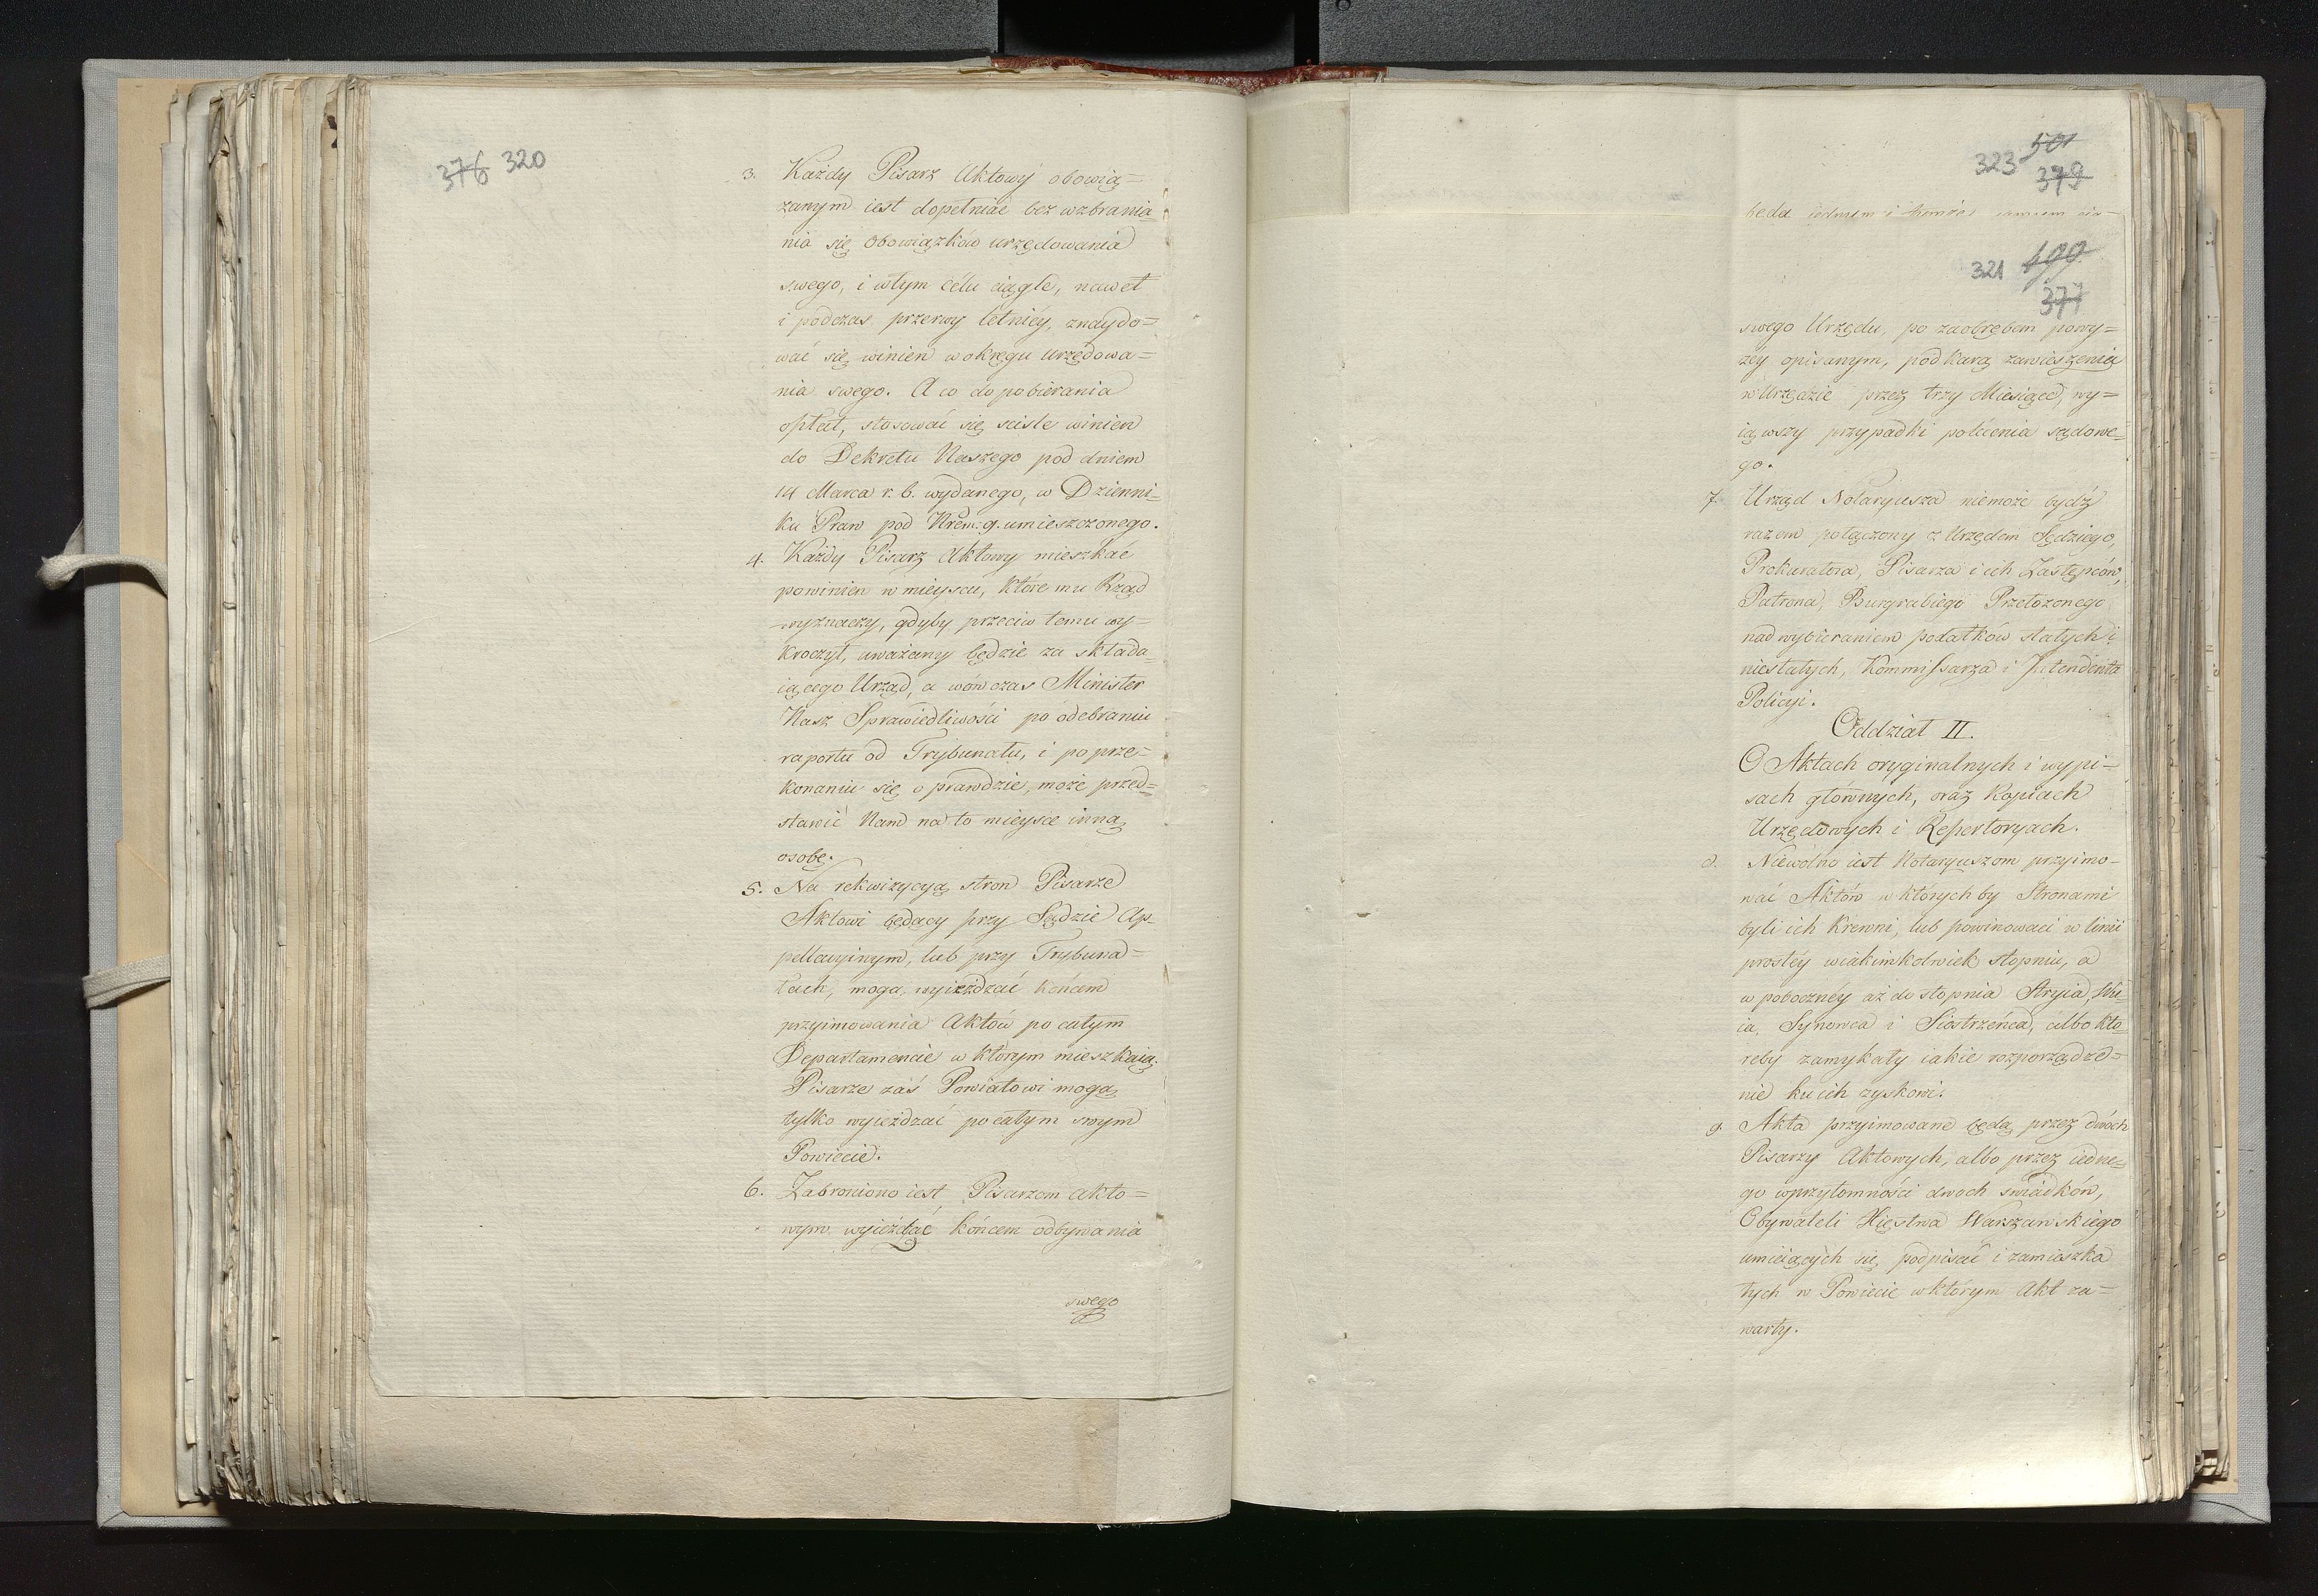 376 320
3. Każdy Pisarz Aktowy obowią=
zanym iest dopełniać bez wzbrania
nia się obowiązków urzędowania
swego, i wtym celu ciągle, nawet
i podczas przerwy letniéy, znaydo=
wać się winien w okręgu urzędowa=
nia swego. A co do pobierania
opłat, stosować się sciśle winien
do Dekretu Naszego pod dniem
14 Marca r. b. wydanego, w Dzienni=
ku Praw pod Nrem. 9. umieszczonego.
4. Każdy Pisarz Aktowy mieszkać
powinien w mieyscu, które mu Rząd
wyznaczy, gdyby przeciw temu wy=
kroczył, uważany będzie za składa=
iącego Urząd, a wówczas Minister
Nasz Sprawiedliwości po odebraniu
raportu od Trybunału, i po prze=
konaniu się o prawdzie, może przed=
stawić Nam na to mieysce inną
osobę.
5. Na rekwizycyą stron Pisarze
Aktowi będący przy Sądzie Ap=
pellacyinym, lub przy Trybuna=
łach, mogą wyieżdzać końcem
przyimowania Aktów po całym
Departamencie w którym mieszkaią.
Pisarze zaś Powiatowi mogą
tylko wyieżdzać po całym swym
Powiecie.
6. Zabroniono iest Pisarzom akto=
wym wyieżdżać końcem odbywania
swego
323 501
379
będą iednym i
321 400
377
swego Urzędu, po zaobrębem powy=
zey opisanym, pod karą zawieszenia
w Urzędzie przez trzy Miesiące, wy=
iąwszy przypadki polecenia sądowe=
go.
7. Urząd Notaryusza niemoże bydź
razem połączony z Urzędem Sędziego,
Prokuratora, Pisarza i ich Zastępców,
Patrona, Burgrabiego Przełożonego
nad wybieraniem podatków stałych i
niestałych, Kommissarza i Intendenta
Policyi.
Oddział II.
O Aktach oryginalnych i wypi=
sach głównych, oraz Kopiach
Urzędowych i Repertoryach.
8. Niewolno iest Notaryuszom przyimo=
wać Aktów w których by Stronami
byli ich Krewni, lub powinowaci w linii
prostéy wiakimkolwiek stopniu, a
w pobocznéy aż do stopnia Stryia, Wu=
ia, Synowca i Siostrzeńca, albo któ=
reby zamykały iakie rozporządze=
nie ku ich zyskowi.
9. Akta przyimowane będą przez dwóch
Pisarzy Aktowych, albo przez iedne=
go wprzytomności dwoch świadków,
Obywateli Xięstwa Warszawskiego
umieiących się podpisać i zamieszka
łych w Powiecie w którym Akt za=
warty.